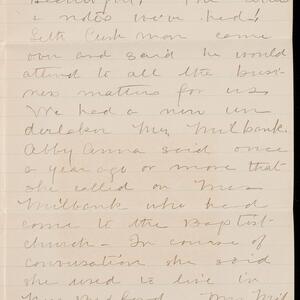 beautiful. The
notes we've had.
Seth Cushman came
over and said he would
attend to all the busi-
ness matters for us
We had a new un
dertaker Mr. Milbank.
Abby Anna said once
a year ago or more that
she called on Mrs
Milbank who had
come to the Baptist
church - In course of
convusation she said
she used to live in